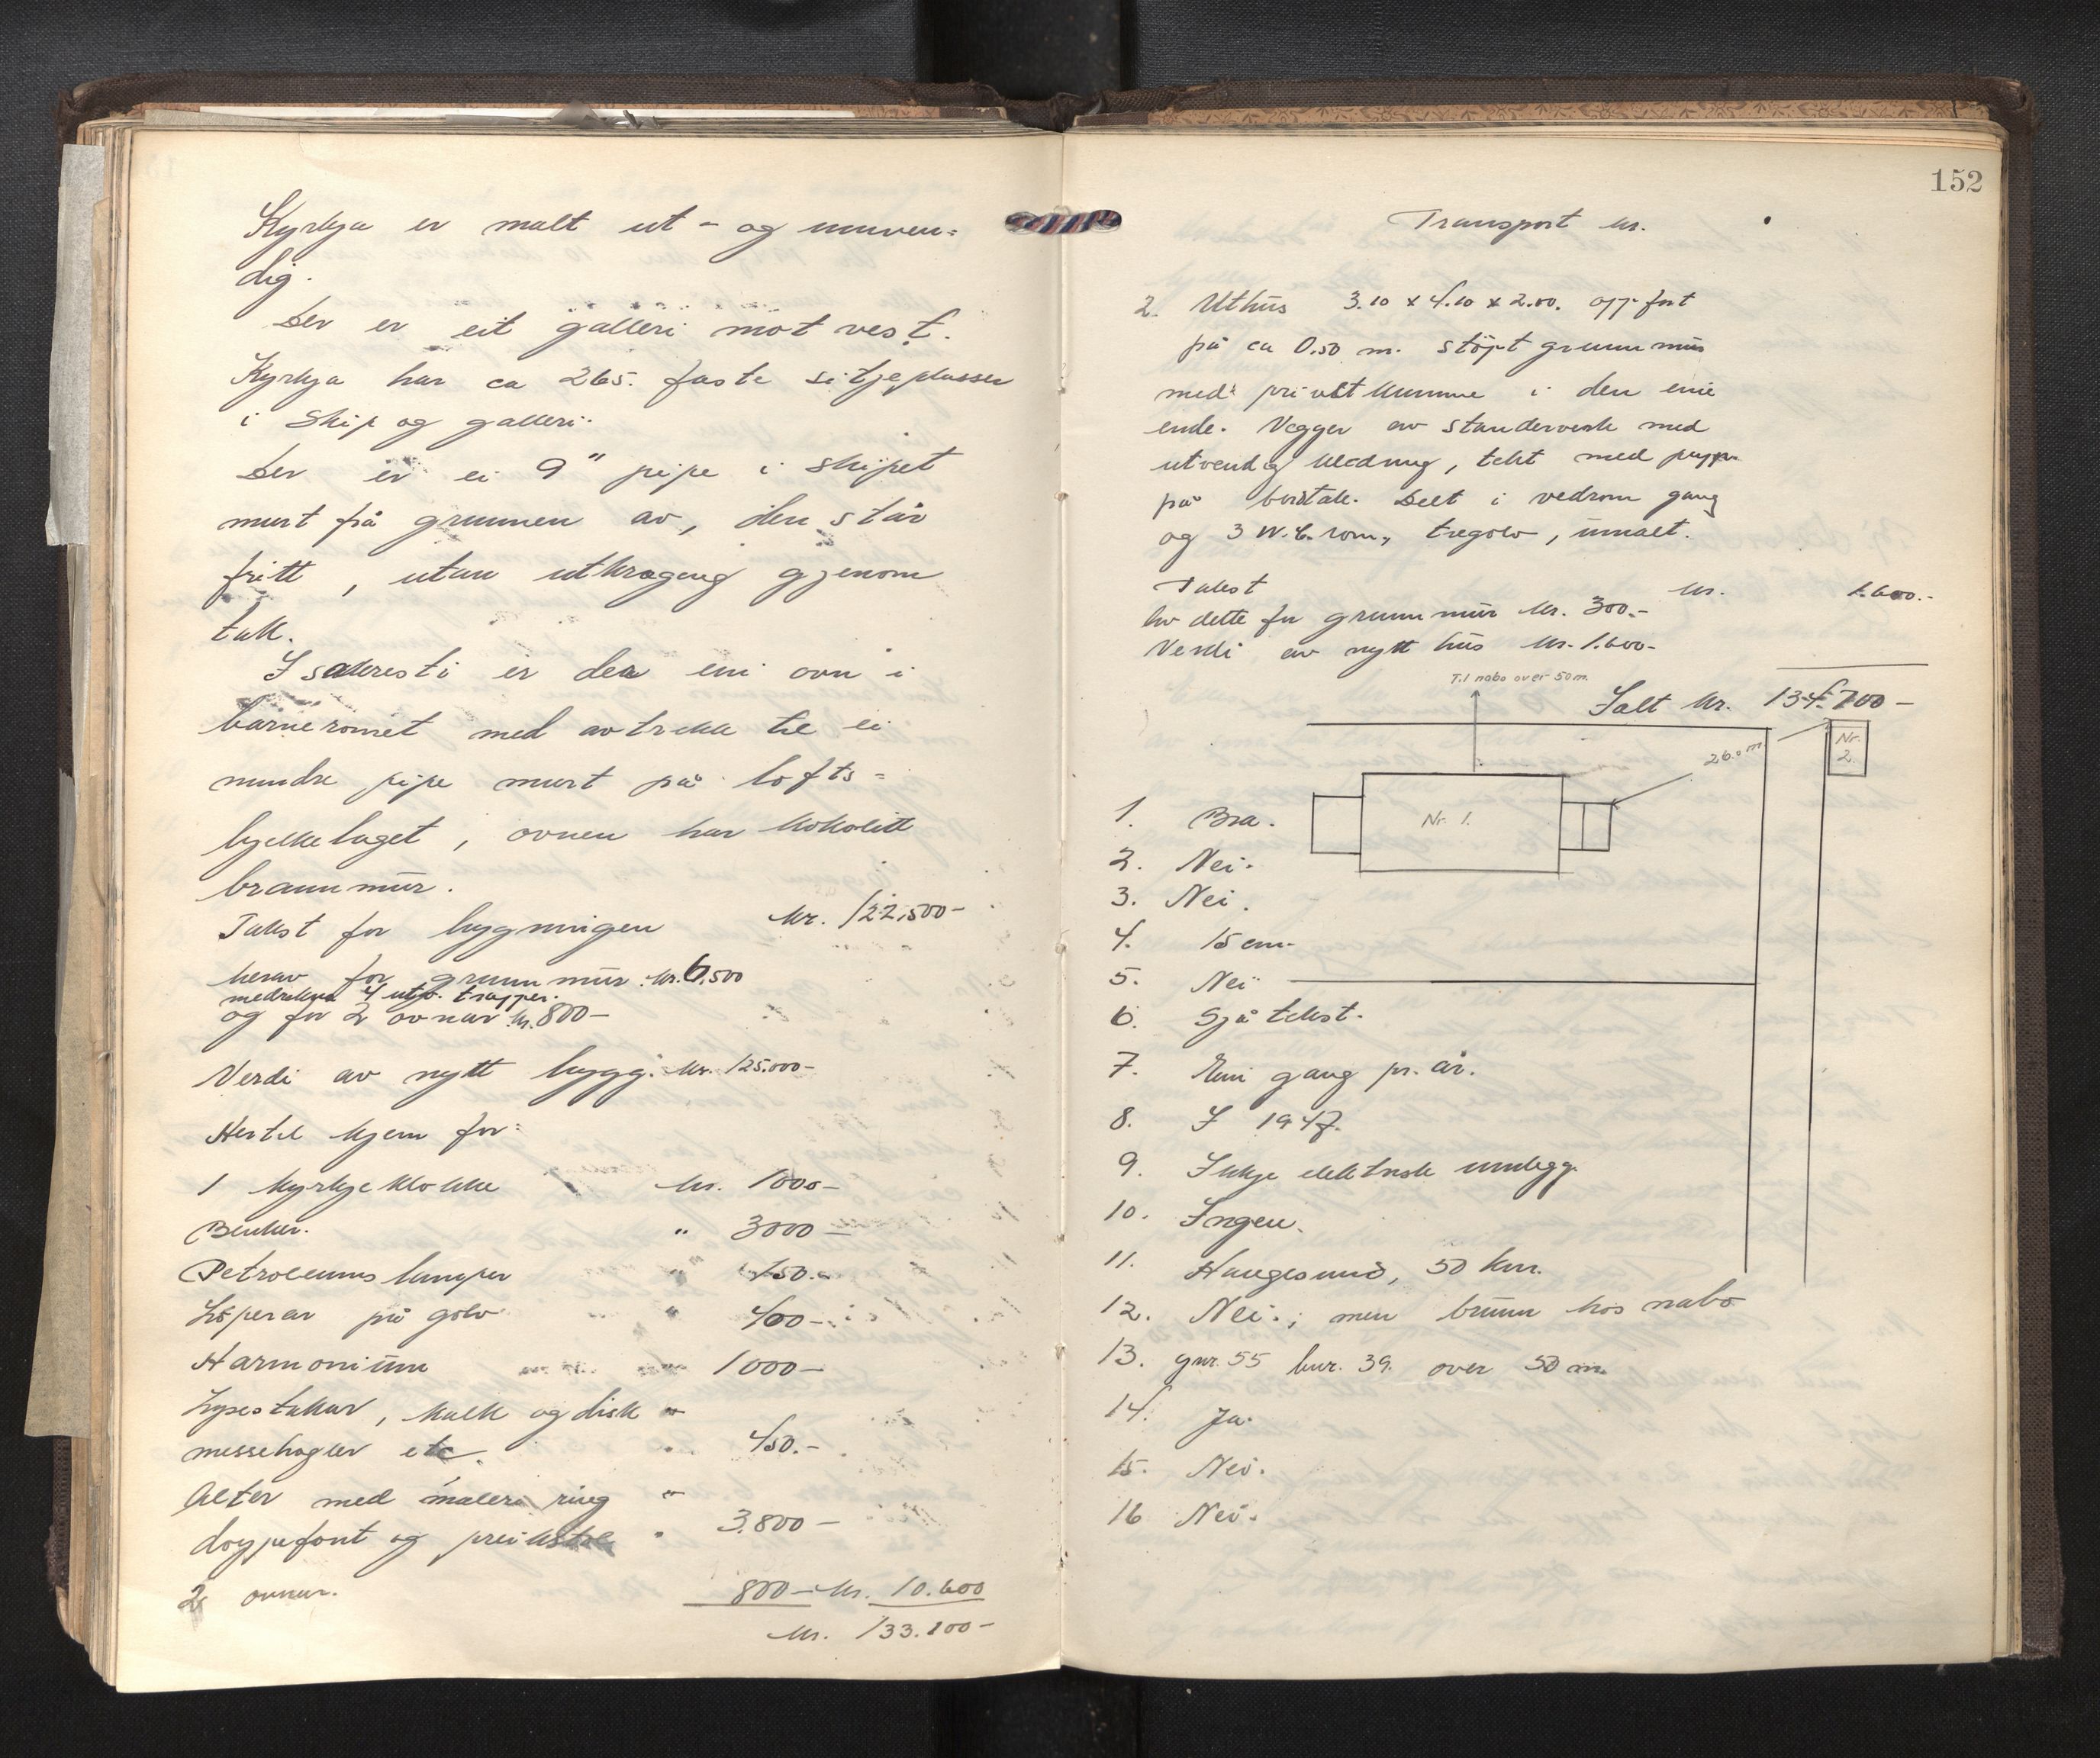 Kyrkja er malt ut- og innven=
dig.
Der er eit galleri mot vest.
Kyrkja har ca 265. faste sitjeplasser
i Skip og galleri.
Der er ei 9" pipe i skipet
murt på grunnen av, den står
fritt, utan utkraging gjenom
tak.
I sakresti er der ein ovn i
barneromet med avtrekk til ei
mindre pipe murt på lofts=
bjelkelaget, ovnen har kokolitt
brannmur.
Takst for bygningen kr. 122,500-
herav for grunnmur kr. 6,500
medrekna 4 utv. trapper.
og for 2 ovnar kr. 800-
Verdi av nytt bygg: kr. 125.000-
Hertil kjem for:
1 kyrkjeklokke kr. 1000-
Benker. " 3000-
Petroleums lamper " 150.-
Löperar på golv " 400-
Harmonium 1000-
Lysestakar, kalk og disk "
messehagler etc. 450.-
Alter med maleri ring "
döypefont og preikstol 3.800-
2 ovnar. 800- kr. 10.600
kr. 133.100-
152
Transport kr.
2. Uthus 3.10 x 4.10 x 2.00. oppfört
på ca 0.50 m. støpt grunnmur
med privetkumme i den eine
ende. Vegger av standerverk med
utvendig kledning, tekt med papp
på bordtak. Delt i vedrom gang
og 3 W.C. rom, tregolv, umalt.
Takst kr. 1.600.-
av dette for grunnmur kr. 300.-
Verdi av nytt hus kr. 1.600-
Til nabo over 50 m.
Ialt kr. 134.700-
Nr. 2
26.0 m
Nr. 1.
1. Bra.
2. Nei.
3. Nei.
4. 15 cm.
5. Nei
6. Sjå tekst.
7. Ein gang pr. år.
8. I 1947.
9. Ikkje elektrisk innlegg.
10. Ingen.
11. Haugesund, 50 km.
12. Nei.; men brunn hos nabo
13. gnr. 55 bnr. 39. over 50 m.
14. Ja.
15. Nei.
16 Nei.